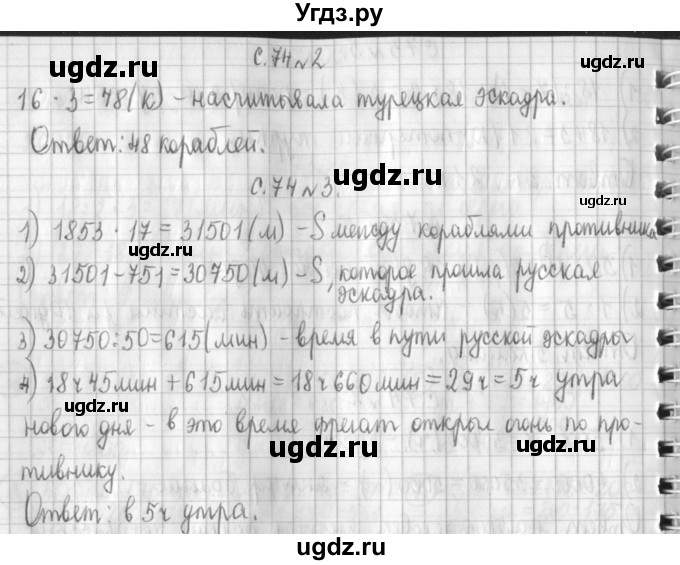 Угдз.ру
с.74 №2
16 · 3 = 48(к) – насчитывала турецкая эскадра.
Ответ: 48 кораблей.
ugdz.ru
с.74 №3.
ugdz.ru
1) 1853 · 17 = 31501(м) – S между кораблями противника
ugdz.ru
2) 31501 – 751 = 30750(м) – S, которое прошла русская
эскадра.
ugdz.ru
3) 30750 : 50 = 615(мин) – время в пути русской эскадры
4) 18ч 45мин + 615мин = 18ч 660мин = 29ч = 5ч утра
ugdz.ru
нового дня – в это время фрегат открыл огонь по про-
тивнику.
ugdz.ru
ugdz.ru
Ответ: в 5ч утра.
ugdz.ru